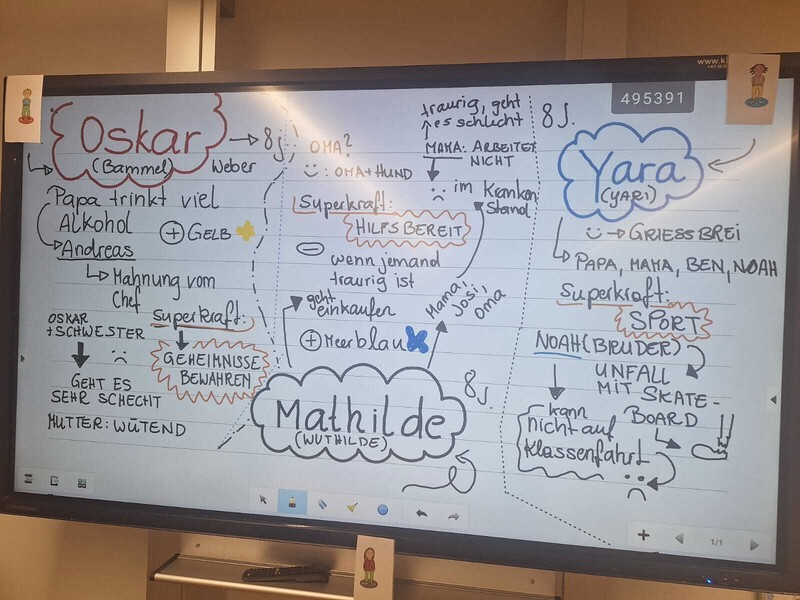 www.k
495391
Oskar
(Bammel)
→ 8 J.
Weber
Papa trinkt viel
Alkohol
Andreas
⊕ GELB
Mahnung vom
Chef
OSKAR
+ SCHWESTER
Superkraft:
GEHEIMNISSE
BEWAHREN
GEHT ES
SEHR SCHECHT
MUTTER: WÜTEND
OMA?
: OMA + HUND
Superkraft:
HILFSBEREIT
⊖ wenn jemand
traurig ist
geht
einkaufen
⊕ Meerblau
traurig, geht
es schlucht
MAMA: ARBEITET
NICHT
im Kranken
stand
Mama,
Josi,
Oma
Mathilde
(WUTHILDE)
8 J.
8 J.
Yara
(YARI)
→ GRIESSBREI
PAPA, MAMA, BEN, NOAH
Superkraft:
SPORT
NOAH (BRUDER)
UNFALL
MIT SKATE-
BOARD
kann
nicht auf
Klassenfahrt
1/1